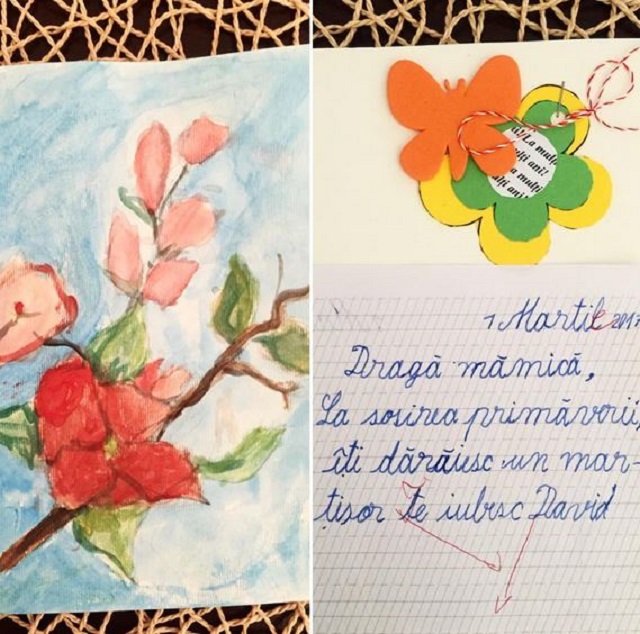 La mulț
ulți ani!
a mulți
lți ani
1 Martie 2017
Dragă mămică,
La sosirea primăverii,
îți dărăiesc un mar-
țișor te iubesc David